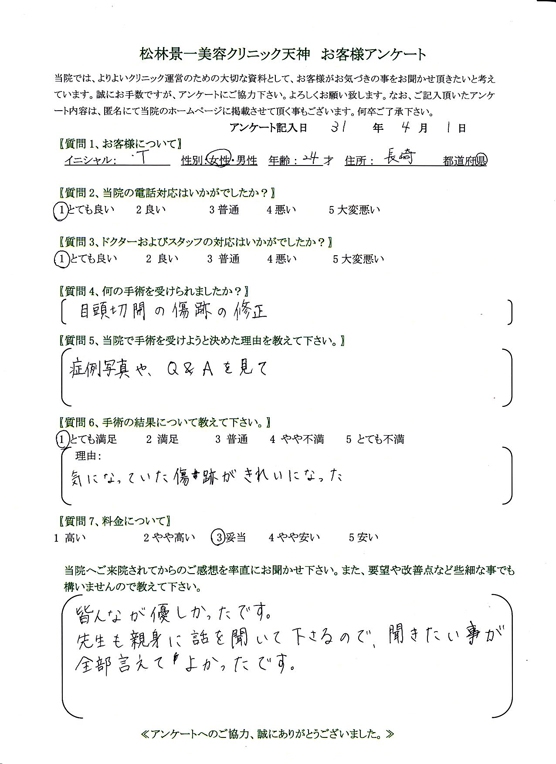 松林景一美容クリニック天神　お客様アンケート
当院では、よりよいクリニック運営のための大切な資料として、お客様がお気づきの事をお聞かせ頂きたいと考え
ています。誠にお手数ですが、アンケートにご協力下さい。よろしくお願い致します。なお、ご記入頂いたアンケ
ート内容は、匿名にて当院のホームページに掲載させて頂く事もございます。何卒ご了承下さい。
アンケート記入日　31　年　4　月　1　日
〖質問1、お客様について〗
イニシャル：　T　性別：女性・男性　年齢：24才　住所：　長崎　都道府県
〖質問2、当院の電話対応はいかがでしたか？〗
1とても良い　2 良い　3 普通　4 悪い　5 大変悪い
〖質問3、ドクターおよびスタッフの対応はいかがでしたか？〗
1とても良い　2 良い　3 普通　4 悪い　5 大変悪い
〖質問4、何の手術を受けられましたか？〗
目頭切開の傷跡の修正
〖質問5、当院で手術を受けようと決めた理由を教えて下さい。〗
症例写真や、Q&Aを見て
〖質問6、手術の結果について教えて下さい。〗
1とても満足　2 満足　3 普通　4 やや不満　5 とても不満
理由：
気になっていた傷跡がきれいになった
〖質問7、料金について〗
1 高い　2 やや高い　3妥当　4 やや安い　5 安い
当院へご来院されてからのご感想を率直にお聞かせ下さい。また、要望や改善点など些細な事でも
構いませんので教えて下さい。
皆んなが優しかったです。
先生も親身に話を聞いて下さるので、聞きたい事が
全部言えてよかったです。
≪アンケートへのご協力、誠にありがとうございました。≫